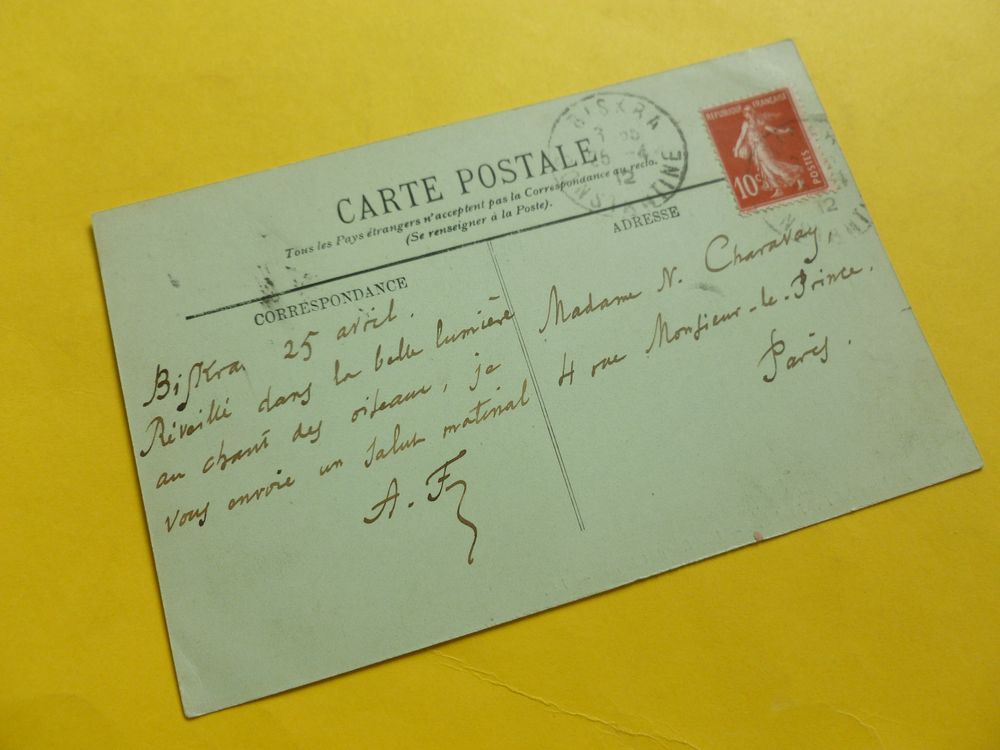 CARTE POSTALE
Tous les Pays étrangers n'acceptent pas la Correspondance au recto.
(Se renseigner à la Poste).
CORRESPONDANCE
ADRESSE
BISKRA
25 -4
12
CONSTANTINE
REPUBLIQUE FRANÇAISE
10c
POSTES
12
Biskra 25 avril.
Réveillé dans la belle lumière
au chant des oiseaux, je
vous envoie un salut matinal
A. F.
Madame N. Charavay
4 rue Monsieur-le-Prince.
Paris.